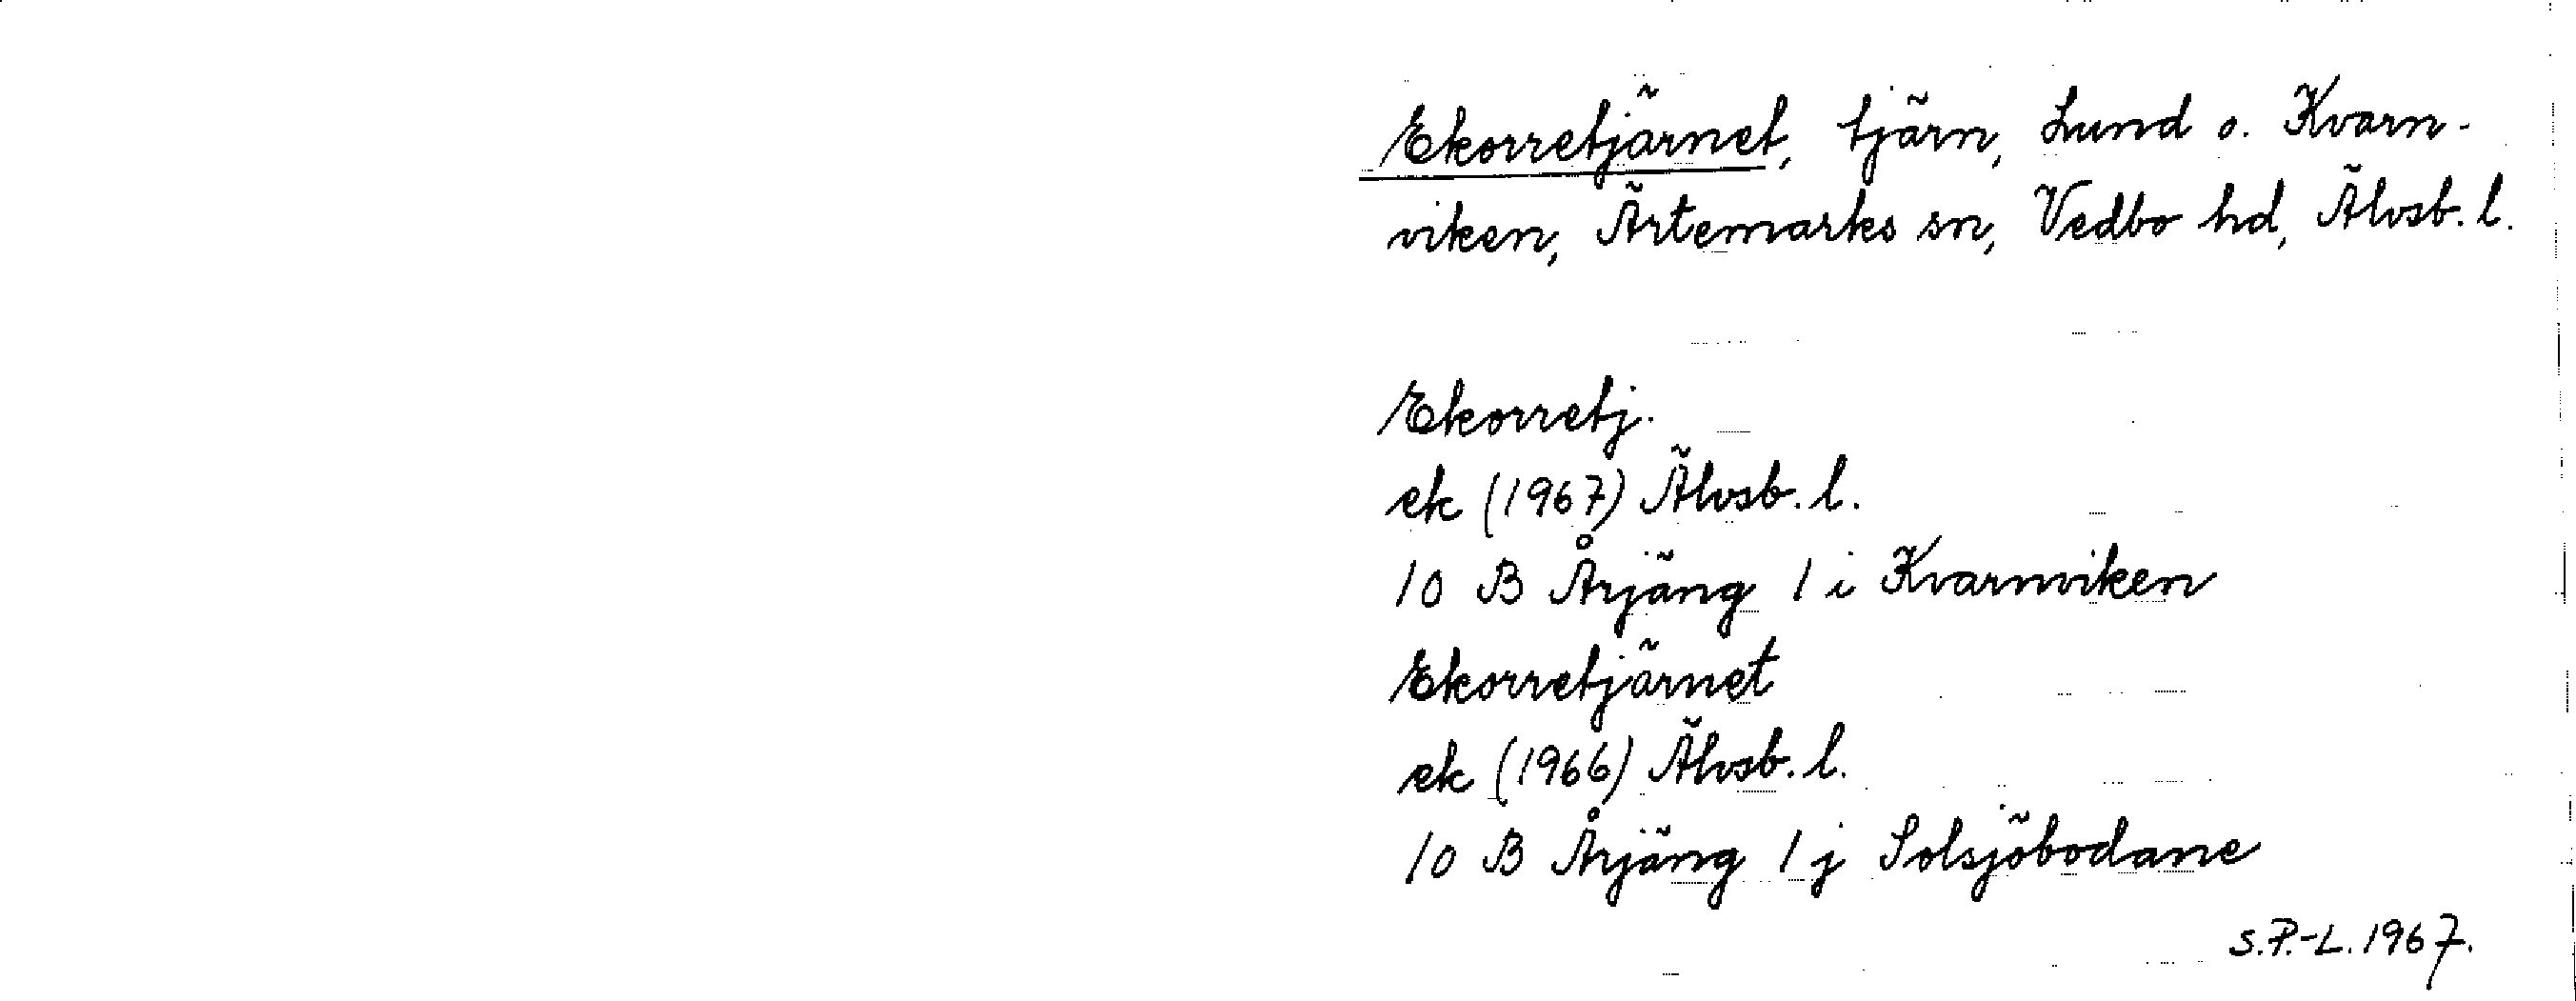 Ekorretjärnet, tjärn, Lund o. Kvarn-
viken, Ärtemarks sn, Vedbo hd, Älvsb. l.
Ekorretj.
ek (1967) Älvsb. l.
10 B Årjäng 1 i Kvarnviken
Ekorretjärnet
ek (1966) Älvsb. l.
10 B Årjäng 1 j Solsjöbodane
S.P.-L. 1967.